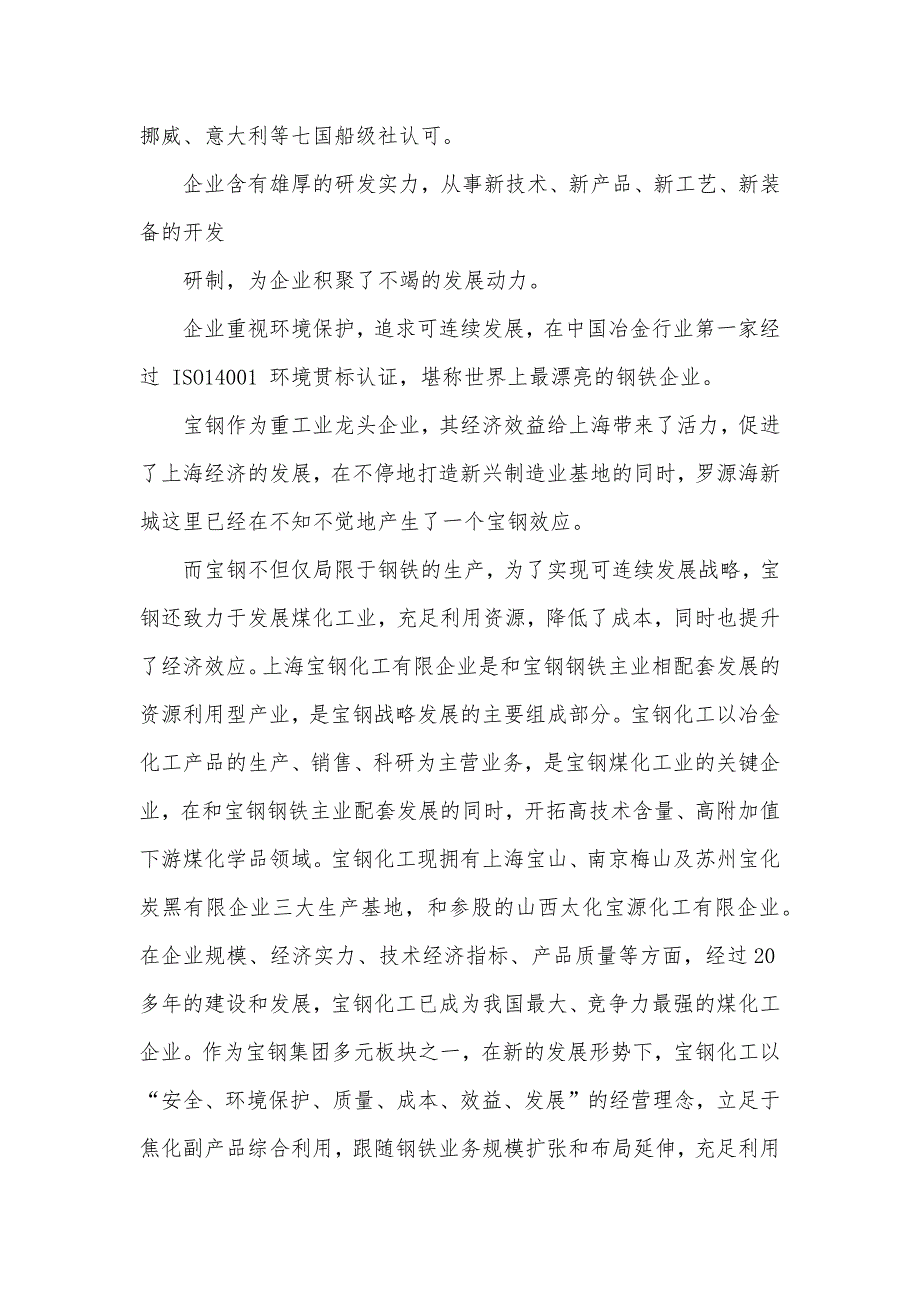 挪威、意大利等七国船级社认可。
企业含有雄厚的研发实力，从事新技术、新产品、新工艺、新装
备的开发
研制，为企业积聚了不竭的发展动力。
企业重视环境保护，追求可连续发展，在中国冶金行业第一家经
过 ISO14001 环境贯标认证，堪称世界上最漂亮的钢铁企业。
宝钢作为重工业龙头企业，其经济效益给上海带来了活力，促进
了上海经济的发展，在不停地打造新兴制造业基地的同时，罗源海新
城这里已经在不知不觉地产生了一个宝钢效应。
而宝钢不但仅局限于钢铁的生产，为了实现可连续发展战略，宝
钢还致力于发展煤化工业，充足利用资源，降低了成本，同时也提升
了经济效应。上海宝钢化工有限企业是和宝钢钢铁主业相配套发展的
资源利用型产业，是宝钢战略发展的主要组成部分。宝钢化工以冶金
化工产品的生产、销售、科研为主营业务，是宝钢煤化工业的关键企
业，在和宝钢钢铁主业配套发展的同时，开拓高技术含量、高附加值
下游煤化学品领域。宝钢化工现拥有上海宝山、南京梅山及苏州宝化
炭黑有限企业三大生产基地，和参股的山西太化宝源化工有限企业。
在企业规模、经济实力、技术经济指标、产品质量等方面，经过 20
多年的建设和发展，宝钢化工已成为我国最大、竞争力最强的煤化工
企业。作为宝钢集团多元板块之一，在新的发展形势下，宝钢化工以
“安全、环境保护、质量、成本、效益、发展”的经营理念，立足于
焦化副产品综合利用，跟随钢铁业务规模扩张和布局延伸，充足利用